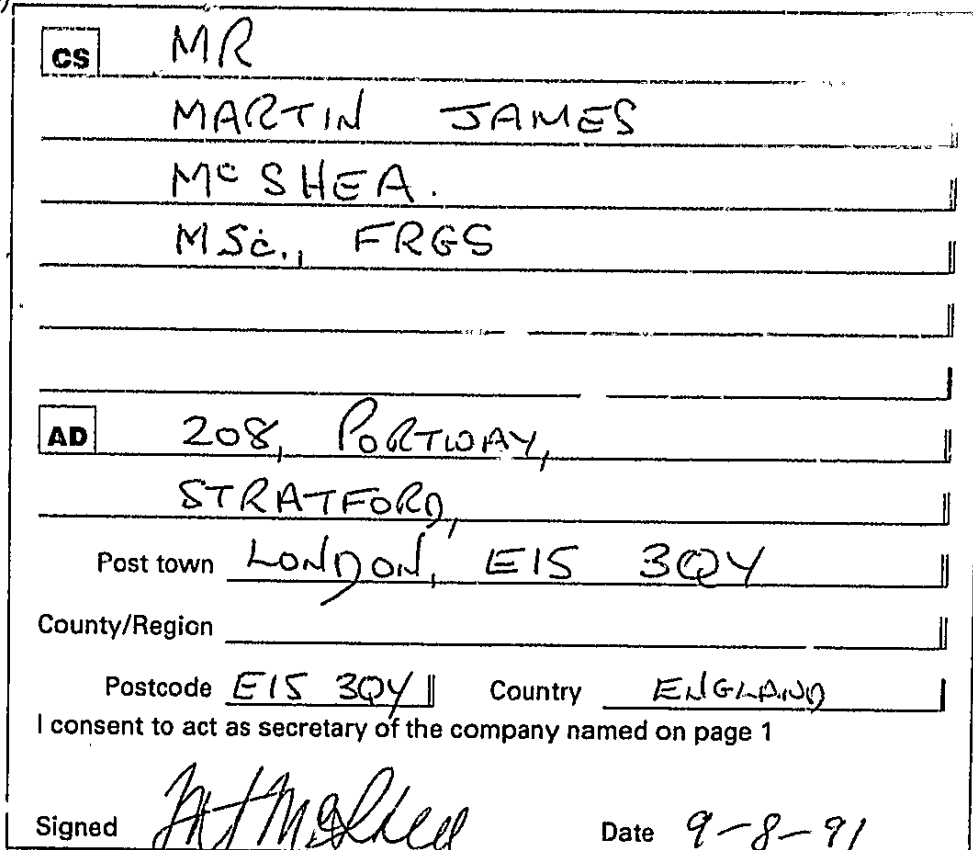 CS MR
MARTIN JAMES
Mc SHEA.
MSc., FRGS
AD 208, PORTWAY,
STRATFORD,
Post town LONDON, E15 3QY
County/Region
Postcode E15 3QY Country ENGLAND
I consent to act as secretary of the company named on page 1
Signed MJ McShea Date 9-8-91